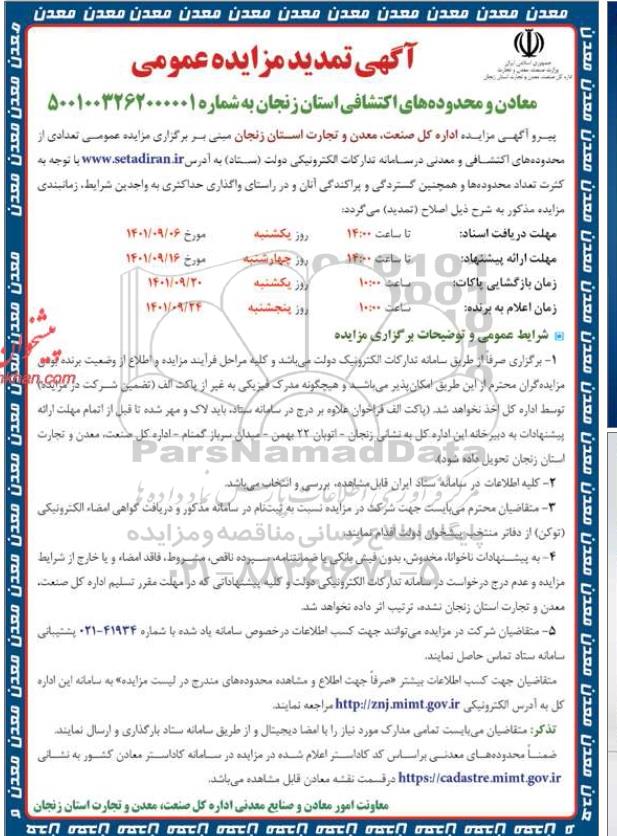 معدن معدن معدن معدن معدن معدن معدن معدن معدن معدن معدن
جمهوری اسلامی ایران
وزارت صنعت، معدن و تجارت
اداره کل صنعت، معدن و تجارت استان زنجان
آگهی تمدید مزایده عمومی
معادن و محدوده‌های اکتشافی استان زنجان به شماره ۵۰۰۱۰۰۳۲۶۲۰۰۰۰۰۱
پیرو آگهی مزایده اداره کل صنعت، معدن و تجارت استان زنجان مبنی بر برگزاری مزایده عمومی تعدادی از
محدوده‌های اکتشافی و معدنی درسامانه تدارکات الکترونیکی دولت (ستاد) به آدرس www.setadiran.ir با توجه به
کثرت تعداد محدوده‌ها و همچنین گستردگی و پراکندگی آنان و در راستای واگذاری حداکثری به واجدین شرایط، زمانبندی
مزایده مذکور به شرح ذیل اصلاح (تمدید) می‌گردد:
مهلت دریافت اسناد: تا ساعت ۱۴:۰۰ روز یکشنبه مورخ ۱۴۰۱/۰۹/۰۶
مهلت ارائه پیشنهاد: تا ساعت ۱۴:۰۰ روز چهارشنبه مورخ ۱۴۰۱/۰۹/۱۶
زمان بازگشایی پاکات: ساعت ۱۰:۰۰ روز یکشنبه ۱۴۰۱/۰۹/۲۰
زمان اعلام به برنده: ساعت ۱۰:۰۰ روز پنجشنبه ۱۴۰۱/۰۹/۲۴
شرایط عمومی و توضیحات برگزاری مزایده
۱- برگزاری صرفاً از طریق سامانه تدارکات الکترونیک دولت می‌باشد و کلیه مراحل فرآیند مزایده و اطلاع از وضعیت برنده بودن
مزایده‌گران محترم از این طریق امکان‌پذیر می‌باشد و هیچگونه مدرک فیزیکی به غیر از پاکت الف (تضمین شرکت در مزایده)
توسط اداره کل اخذ نخواهد شد. (پاکت الف فراخوان علاوه بر درج در سامانه ستاد، باید لاک و مهر شده تا قبل از اتمام مهلت ارائه
پیشنهادات به دبیرخانه این اداره کل به نشانی زنجان - اتوبان ۲۲ بهمن - میدان سرباز گمنام - اداره کل صنعت، معدن و تجارت
استان زنجان تحویل داده شود).
۲- کلیه اطلاعات در سامانه ستاد ایران قابل مشاهده، بررسی و انتخاب می‌باشد.
۳- متقاضیان محترم می‌بایست جهت شرکت در مزایده نسبت به ثبت‌نام در سامانه مذکور و دریافت گواهی امضاء الکترونیکی
(توکن) از دفاتر منتخب پیشخوان دولت اقدام نمایند.
۴- به پیشنهادات ناخوانا، مخدوش، بدون فیش بانکی یا ضمانتنامه، سپرده ناقص، مشروط، فاقد امضاء و یا خارج از شرایط
مزایده و عدم درج درخواست در سامانه تدارکات الکترونیکی دولت و کلیه پیشنهاداتی که در مهلت مقرر تسلیم اداره کل صنعت،
معدن و تجارت استان زنجان نشده، ترتیب اثر داده نخواهد شد.
۵- متقاضیان شرکت در مزایده می‌توانند جهت کسب اطلاعات درخصوص سامانه یاد شده با شماره ۴۱۹۳۴-۰۲۱ پشتیبانی
سامانه ستاد تماس حاصل نمایند.
متقاضیان جهت کسب اطلاعات بیشتر «صرفاً جهت اطلاع و مشاهده محدوده‌های مندرج در لیست مزایده» به سامانه این اداره
کل به آدرس الکترونیکی http://znj.mimt.gov.ir مراجعه نمایند.
تذکر: متقاضیان می‌بایست تمامی مدارک مورد نیاز را با امضا دیجیتال و از طریق سامانه ستاد بارگذاری و ارسال نمایند.
ضمناً محدوده‌های معدنی براساس کد کاداستر اعلام شده در مزایده در سامانه کاداستر معادن کشور به نشانی
https://cadastre.mimt.gov.ir درقسمت نقشه معادن قابل مشاهده می‌باشد.
معاونت امور معادن و صنایع معدنی اداره کل صنعت، معدن و تجارت استان زنجان
ParsNamadData
پایگاه اطلاع رسانی مناقصه و مزایده
۰۲۱-۸۸۳۴۹۶۷۰-۵